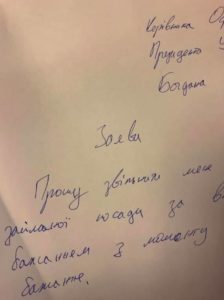 Керівника Оф
Президента У
Богдана
Заява
Прошу звільнити мене
займаної посади за в
бажанням з моменту
бажання.